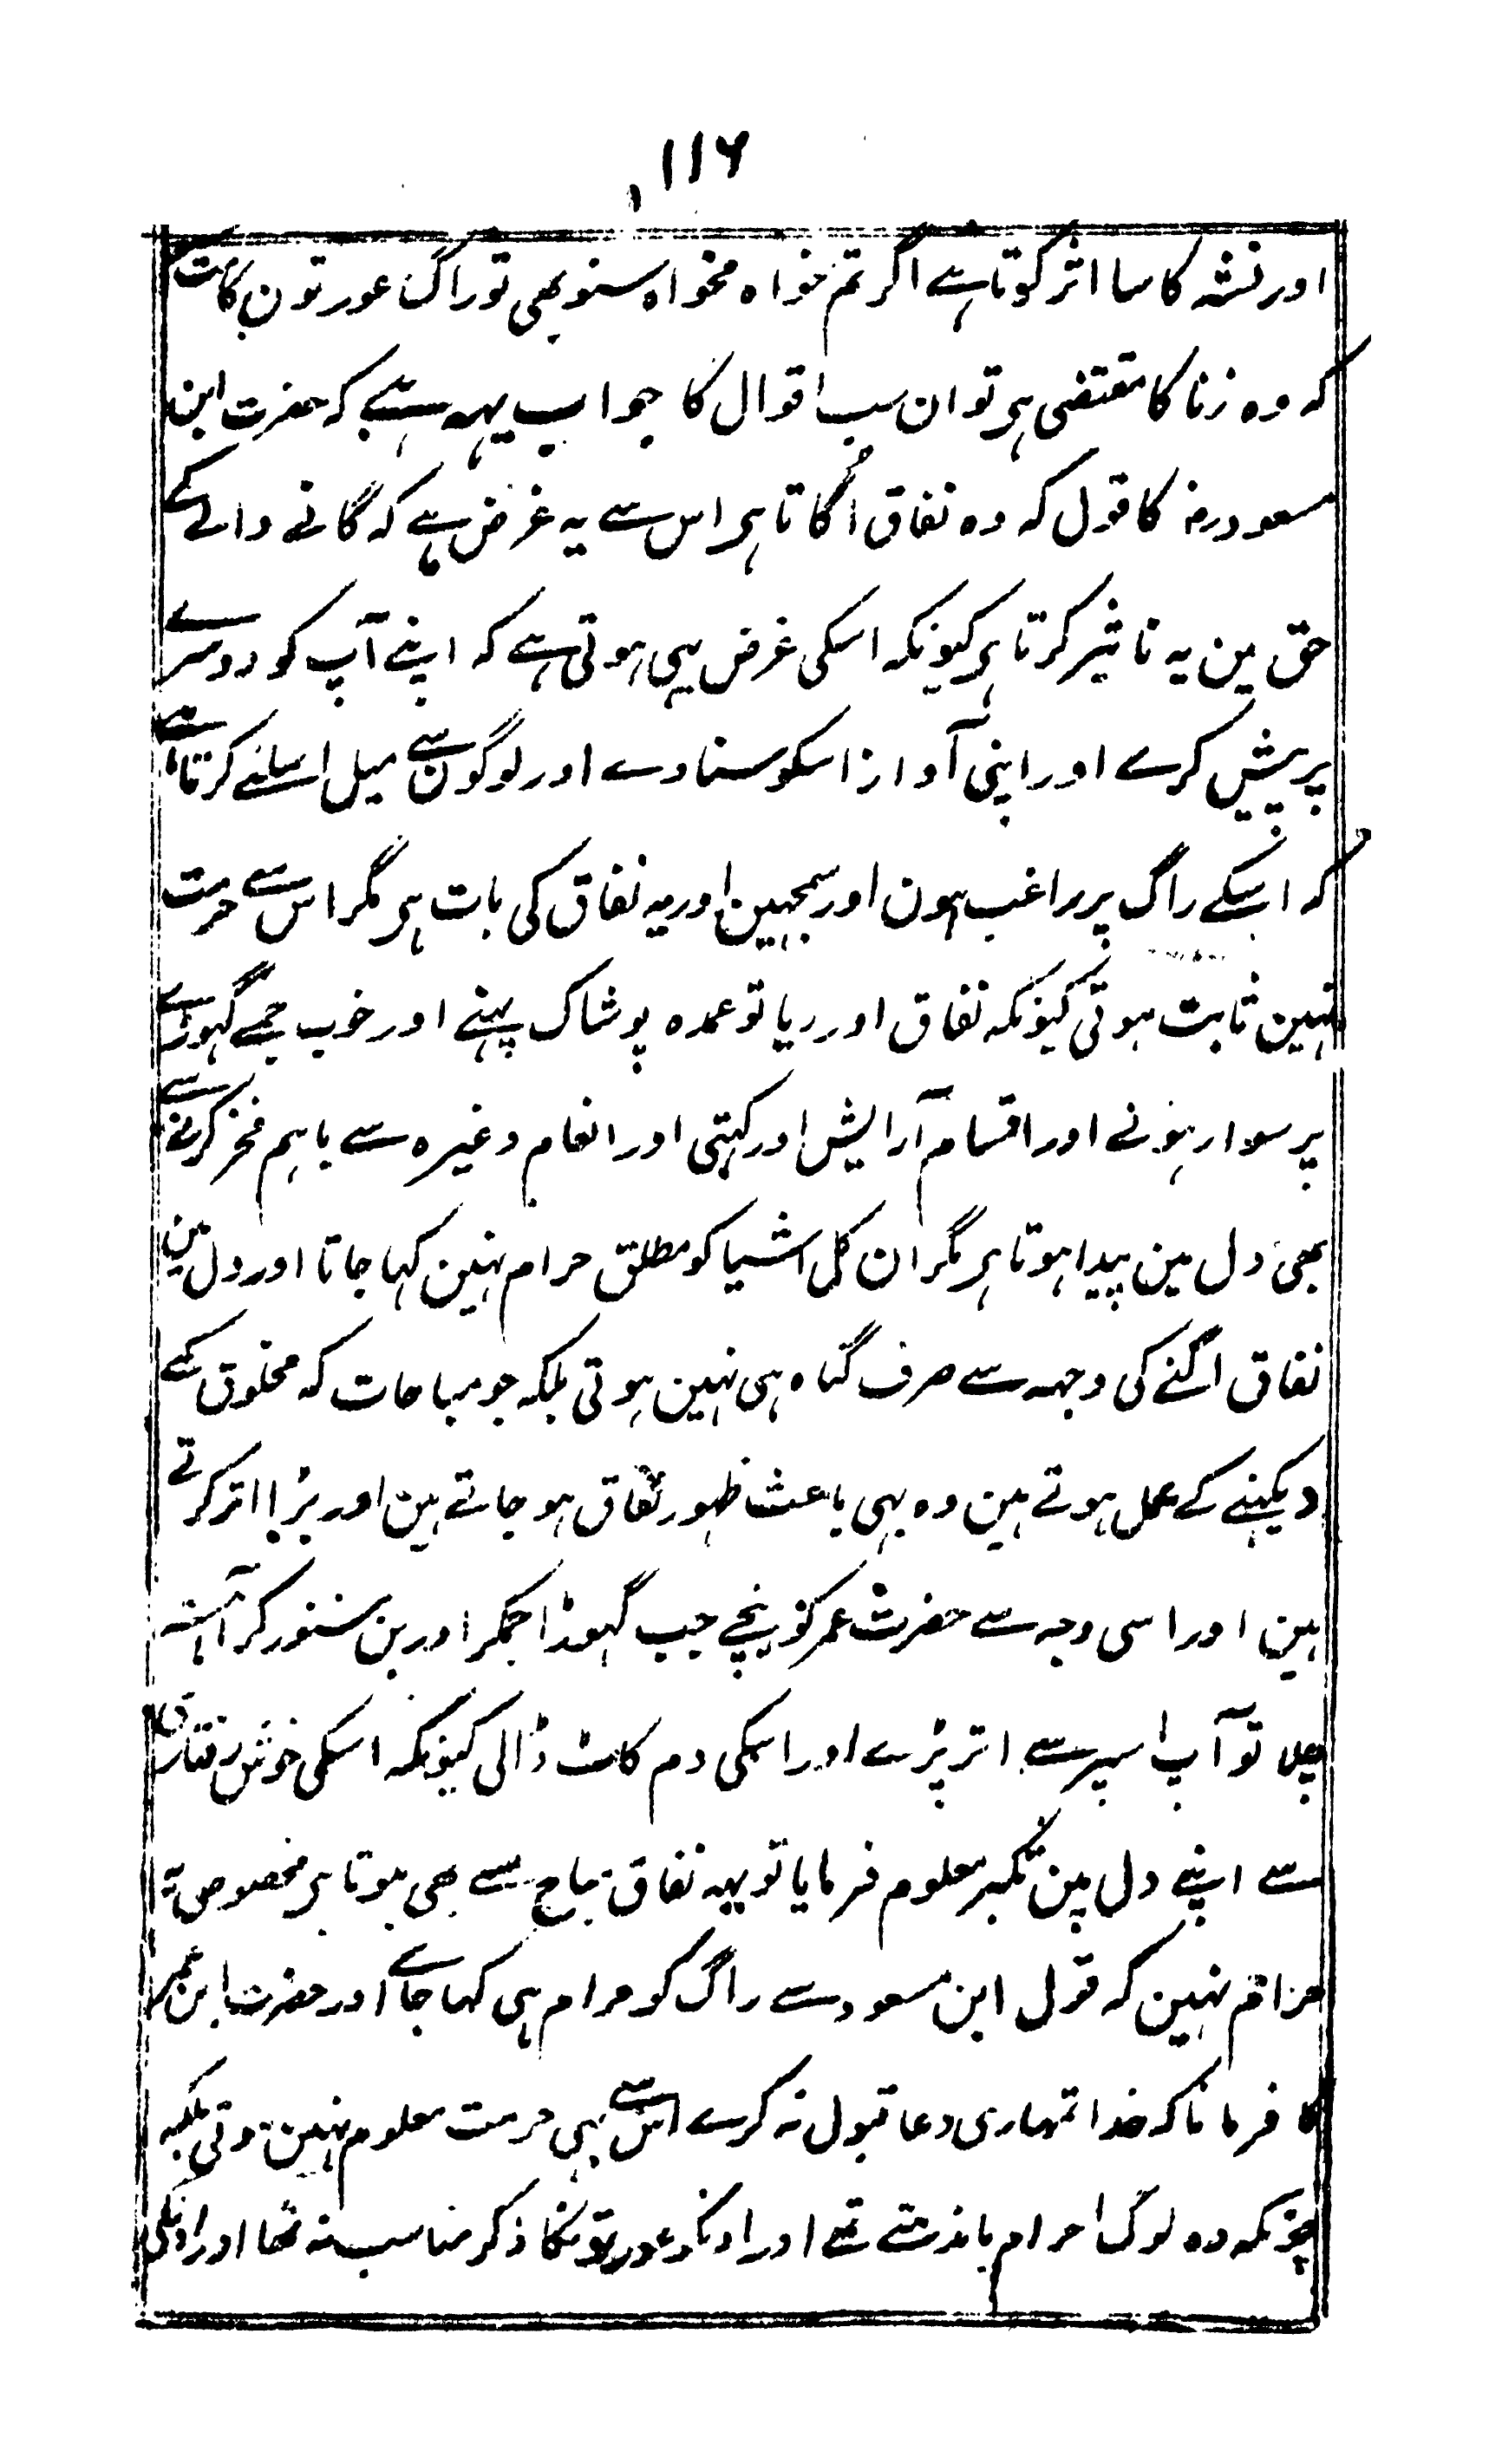 ۱۱۶
اور نشہ کا سا اثر کرتا ہے اگر تم خواہ مخواہ سنو بھی تو راگ عورتون کا مت
کہ وہ زنا کا مقتضی ہر تو ان سب اقوال کا جواب یہہ ہے کہ حضرت ابن
مسعود رض کا قول کہ وہ نفاق اُگاتا ہر اس سے یہ غرض ہے کہ گانے والے کے
حق مین یہ تاثیر کرتا ہر کیونکہ اسکی غرض یہی ہوتی ہے کہ اپنے آپ کو دوسرے
پر پیش کرے اور اپنی آواز اسکو سنا دے اور لوگون سے میل اسلئے کرتا ہے
کہ اسکے راگ پر راغب ہون اور سمجہین اور یہ نفاق کی بات ہر مگر اس سے حرمت
نہین ثابت ہوتی کیونکہ نفاق اور ریا تو عمدہ پوشاک پہنے اور خوب جمے گہوڑے
پر سوار ہونے اور اقسام آرایش اور کہتی اور انعام وغیرہ سے باہم فخر کرنے سے
بھی دل مین پیدا ہوتا ہر مگر ان کل اشیا کو مطلق حرام نہین کہا جاتا اور دل مین
نفاق اگنے کی وجہہ سے صرف گناہ ہی نہین ہوتی بلکہ جو مباحات کہ مخلوق کے
دیکہنے کے عمل ہوتے ہین وہ بہی باعث ظہور نفاق ہو جاتے ہین اور بڑا اثر کرتے
ہین اور اسی وجہ سے حضرت عمر کو نیچے جب گہوڑا جمکر اور بن سنور کر آہستہ
چلا تو آپ اسپر سے اتر پڑے اور اسکی دم کاٹ ڈالی کیونکہ اسکی خوش رفتاری
سے اپنے دل مین تکبر معلوم فرمایا تو یہہ نفاق مباح سے بھی ہوتا ہر مخصوص بہ
حرام نہین کہ قول ابن مسعود سے راگ کو حرام ہی کہا جاے اور حضرت ابن عمر
کا فرمانا کہ خدا تمہاری دعا قبول نہ کرے اس سے بہی حرمت معلوم نہین ہوتی بلکہ
چونکہ وہ لوگ احرام باندہتے تھے اور اونکو عورتونکا ذکر مناسب نہ تھا اور اونکی